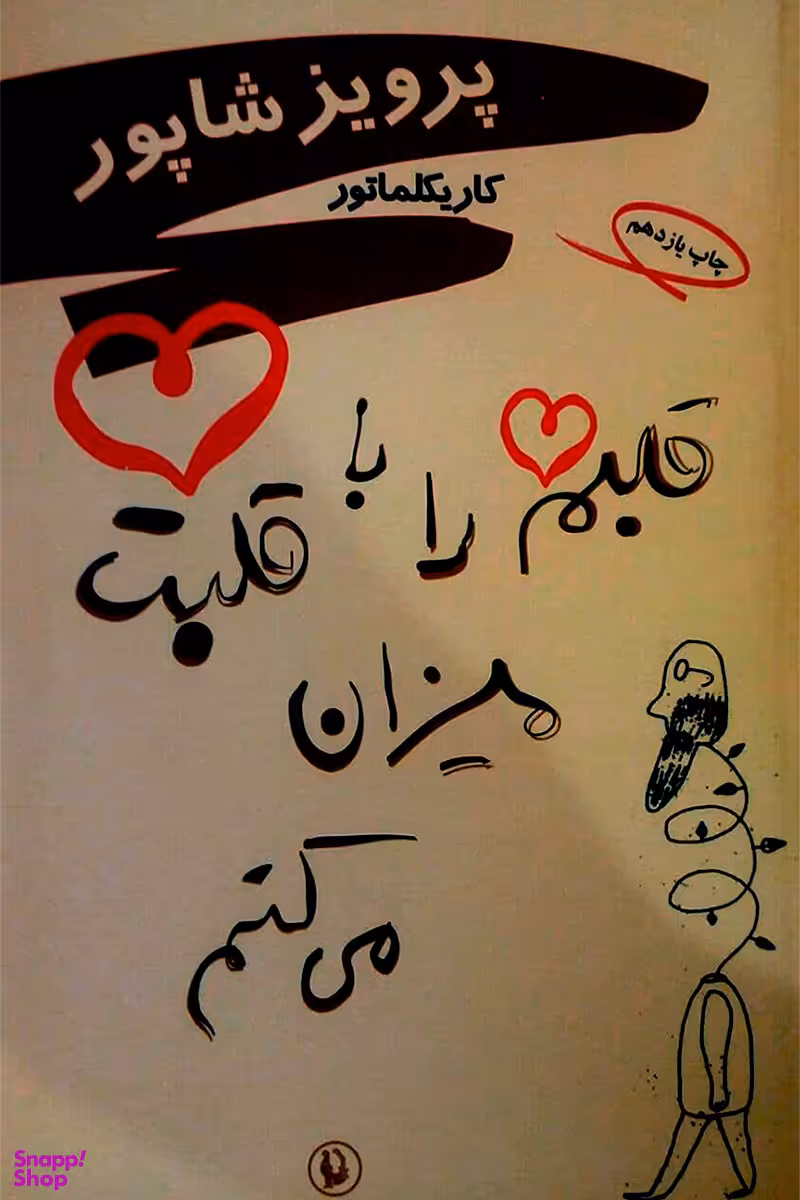 پرویز شاپور
کاریکلماتور
چاپ یازدهم
قلبم را با قلبت
میزان
می‌کنم
Snapp!
Shop